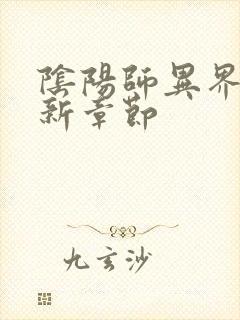 陰陽師異界
新章節
九玄沙